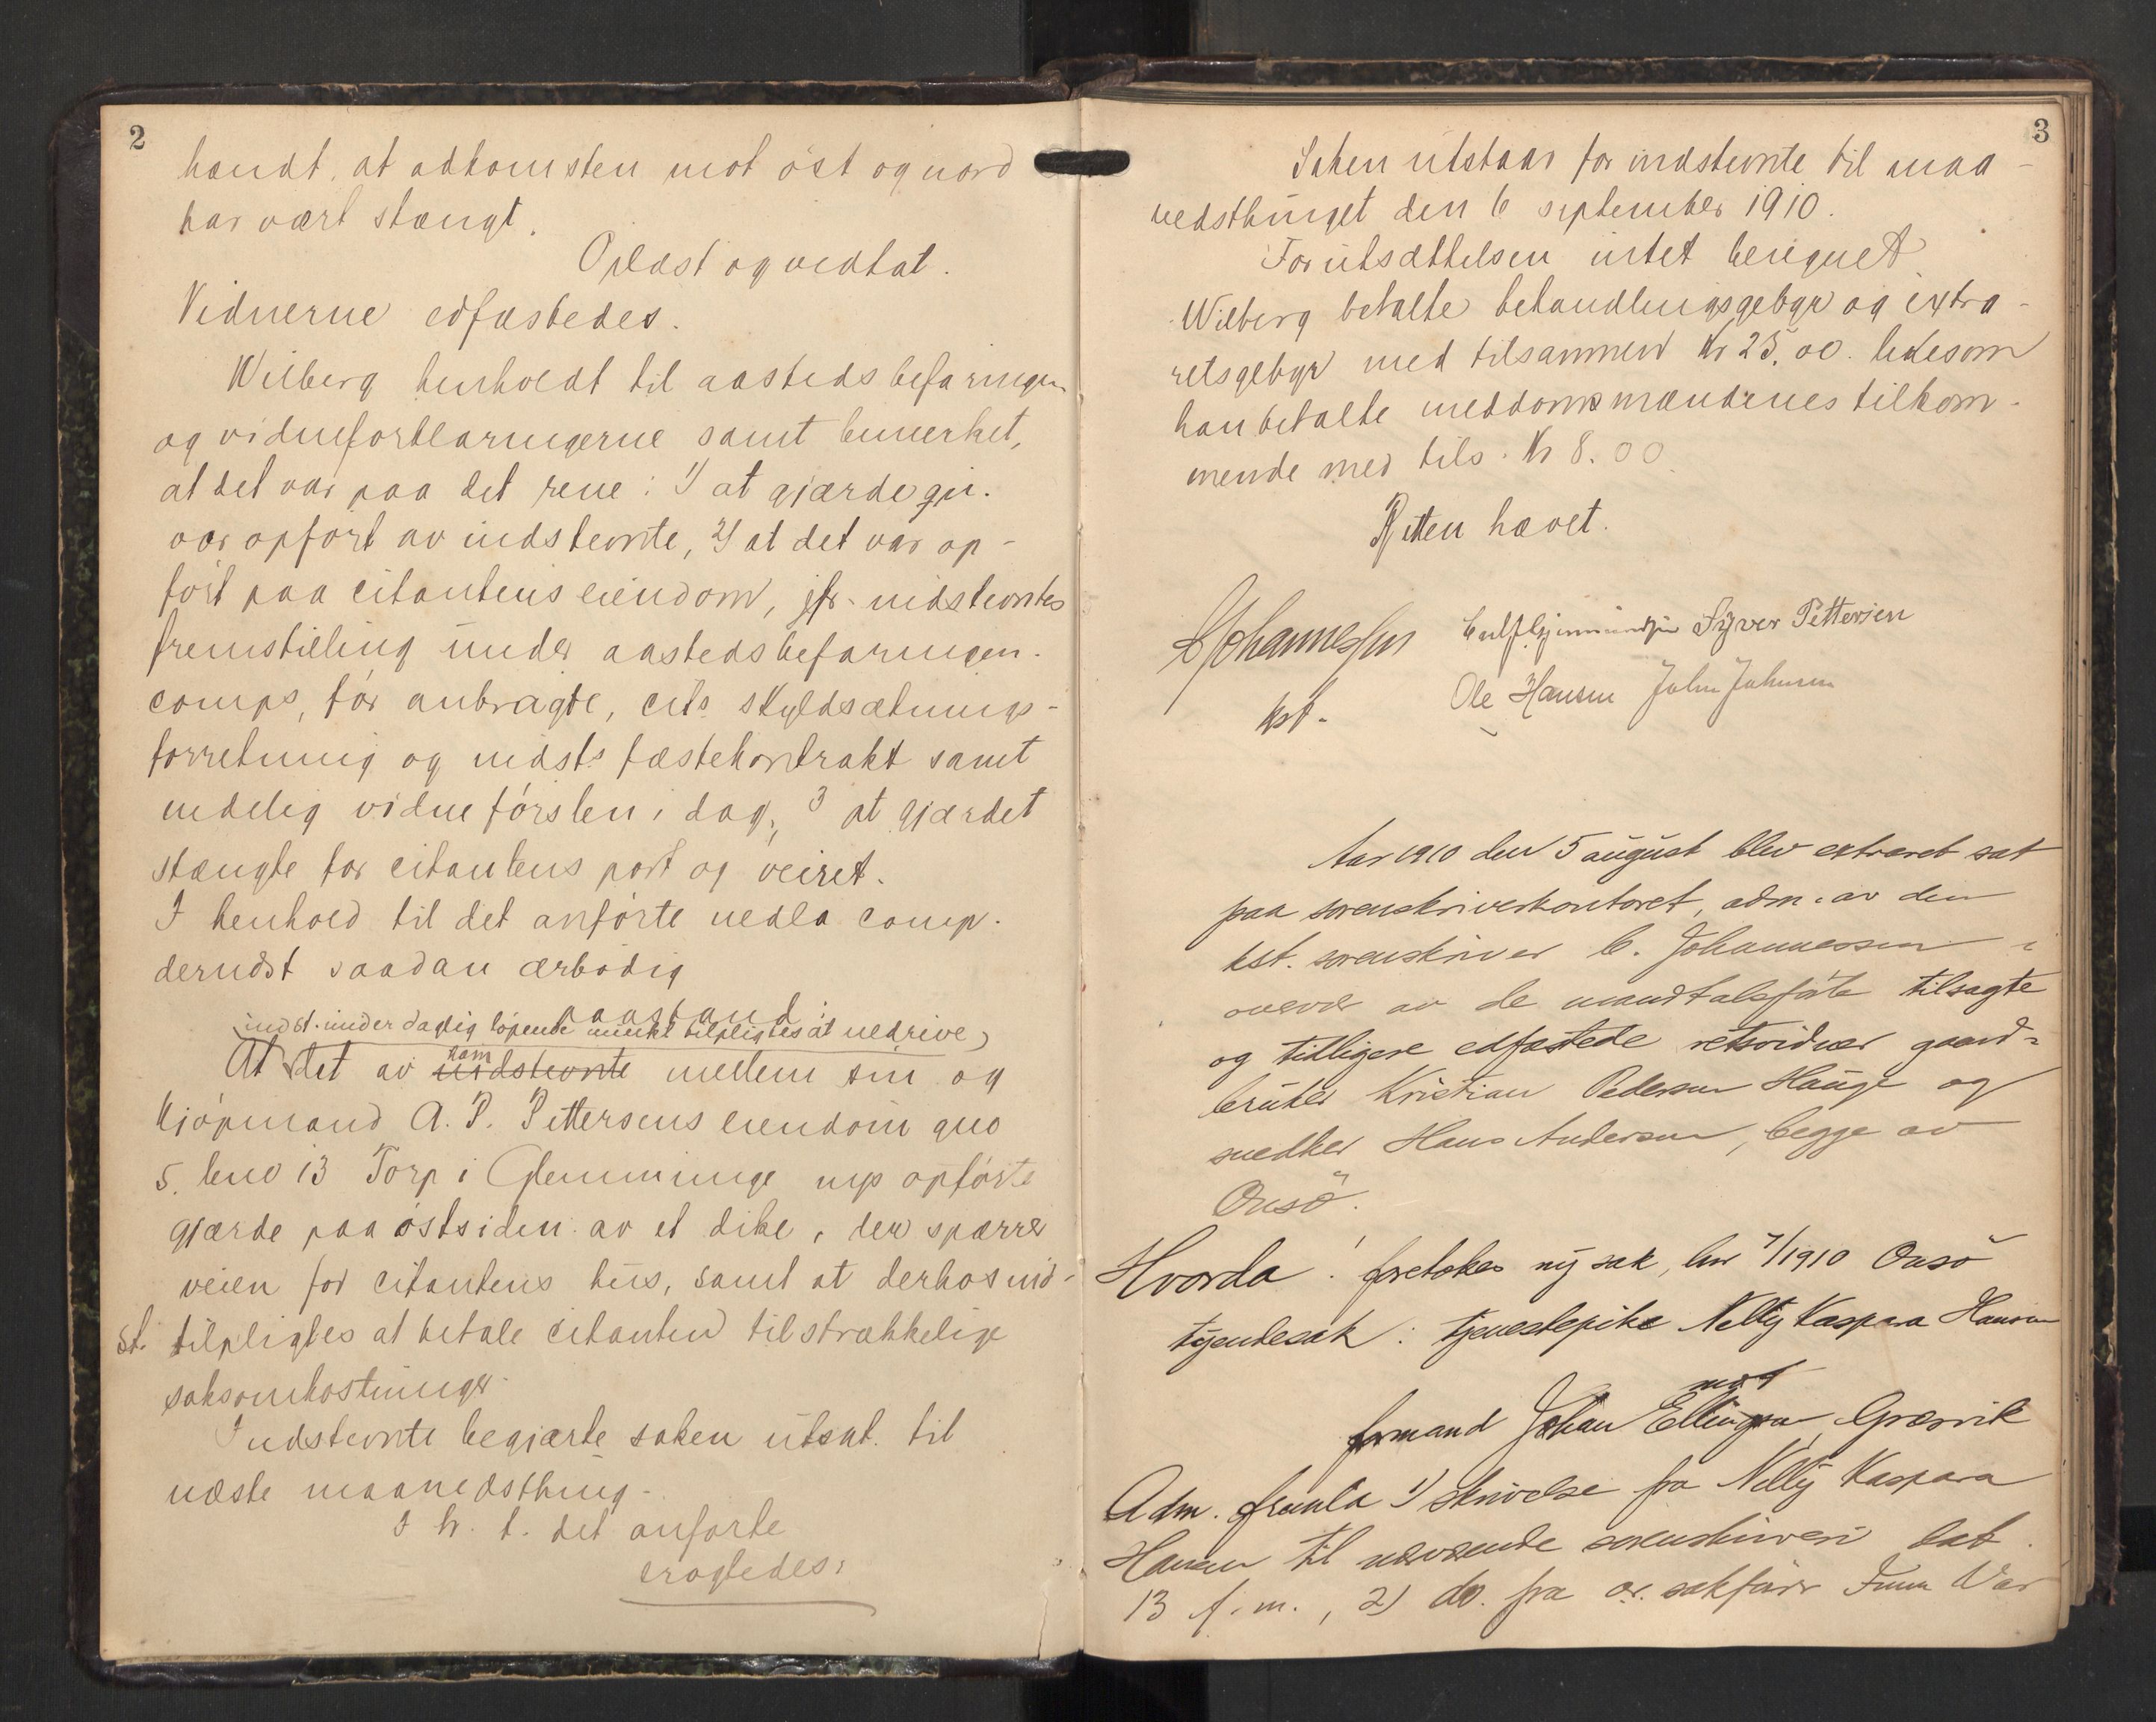 2
hændt, at adkomsten mot öst og nord
har vært stængt.
Oplæst og vedtat.
Vidnerne edfæstedes.
Wilberg henholdt til aastedsbefaringen
og vidneforklaringerne samt bemerket,
at det var paa det rene: 1) at gjærde qu.
var opfört av indstevnte, 2) at det var op-
fört paa citantens eiendom, jfr. indstevntes
fremstilling under aastedsbefaringen.
comps, för anbragte, cits skyldsætnings-
forretning og indsts fæstekontrakt samt
endelig vidneförslen i dag, 3 at gjærdet
stængte for citantens port og veiret.
I henhold til det anförte nedla comp.
dernæst saadan ærbödig
paastand:
indst. under daglig löpende mulkt tilpligtes at nedrive,
At det av ham indstevnte mellem sin og
Kjöpmand A. P. Pettersens eiendom gno
5. bno 13 Torp i Glemminge nys opförte
gjærde paa östsiden av et dike, der spærrer
veien for citantens hus, samt at derhos ind-
st. tilpligtes at betale citanten tilstrækkelige
saksomkostninger.
Indstevnte begjærte saken utsat til
næste maanedsthing.
I h. t. det anförte
eragtedes:
3
Saken utstaar for indstevnte til maa-
nedsthinget den 6 september 1910.
For utsættelsen intet beregnet
Wilberg betalte behandlingsgebyr og extra-
retsgebyr med tilsammen Kr 25,00. likesom
han betalte meddomsmændenes tilkom-
mende med tils. Kr 8.00.
Retten hævet.
Johannessen
kst.
Syver Pettersen
Ole Hansen John Johnsen
Aar 1910 den 5 august blev extraret sat
paa sorenskriverkontoret, adm. av den
kst. sorenskriver C. Johannessen i
overvær av de mandtalsförte tilsagte
og tidligere edfæstede retsvidner gaard-
bruker Kristian Pedersen Hauge og
snedker Hans Andersen, begge av
Onsö.
Hvorda! foretokes ny sak, lnr 7/1910 Onsö
tyendesak: tjenestepike Nelly Kaspara Hansen
mot
formand Johan Ellingsen, Græsvik
Adm. fremla 1) skrivelse fra Nelly Kaspara
Hansen til nærværende sorenskriveri dat.
13 f. m., 2) do. fra o.r. sakförer Finn Wær